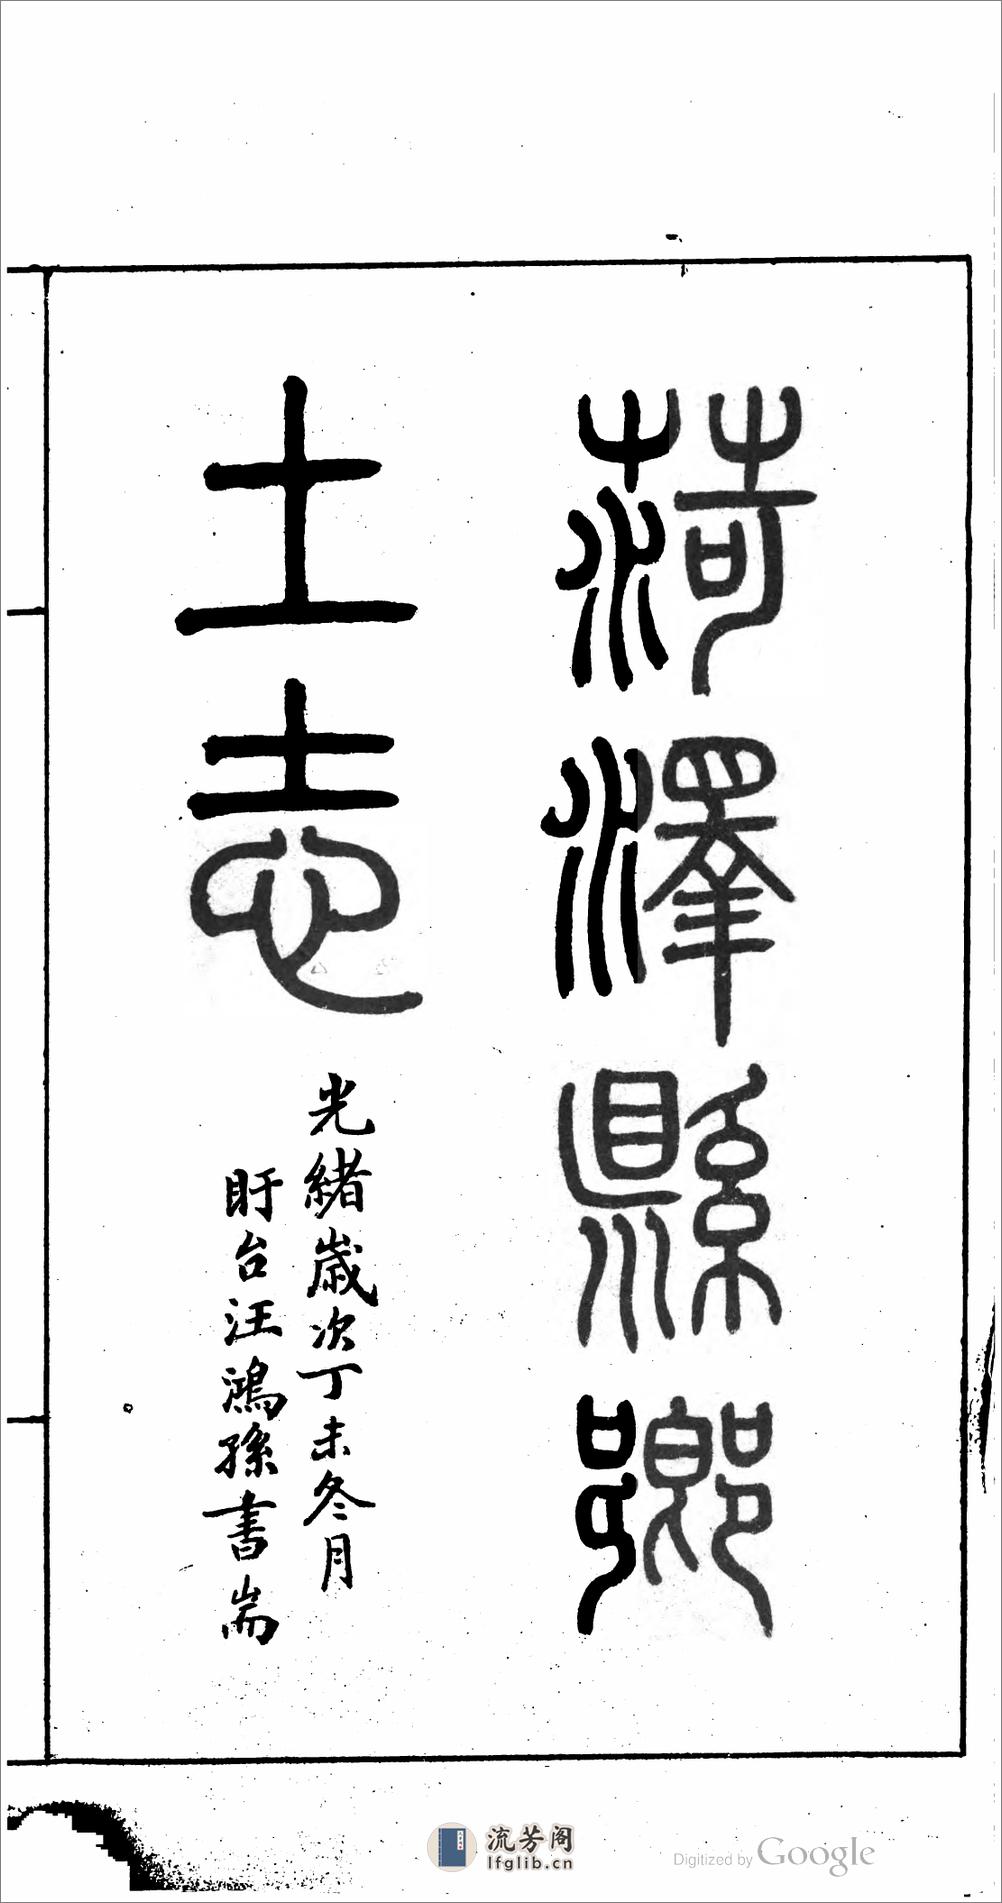 菏澤縣鄉
土志
光緒歲次丁未冬月
盱台汪鴻孫書耑
流芳阁
lfglib.cn
Digitized by Google